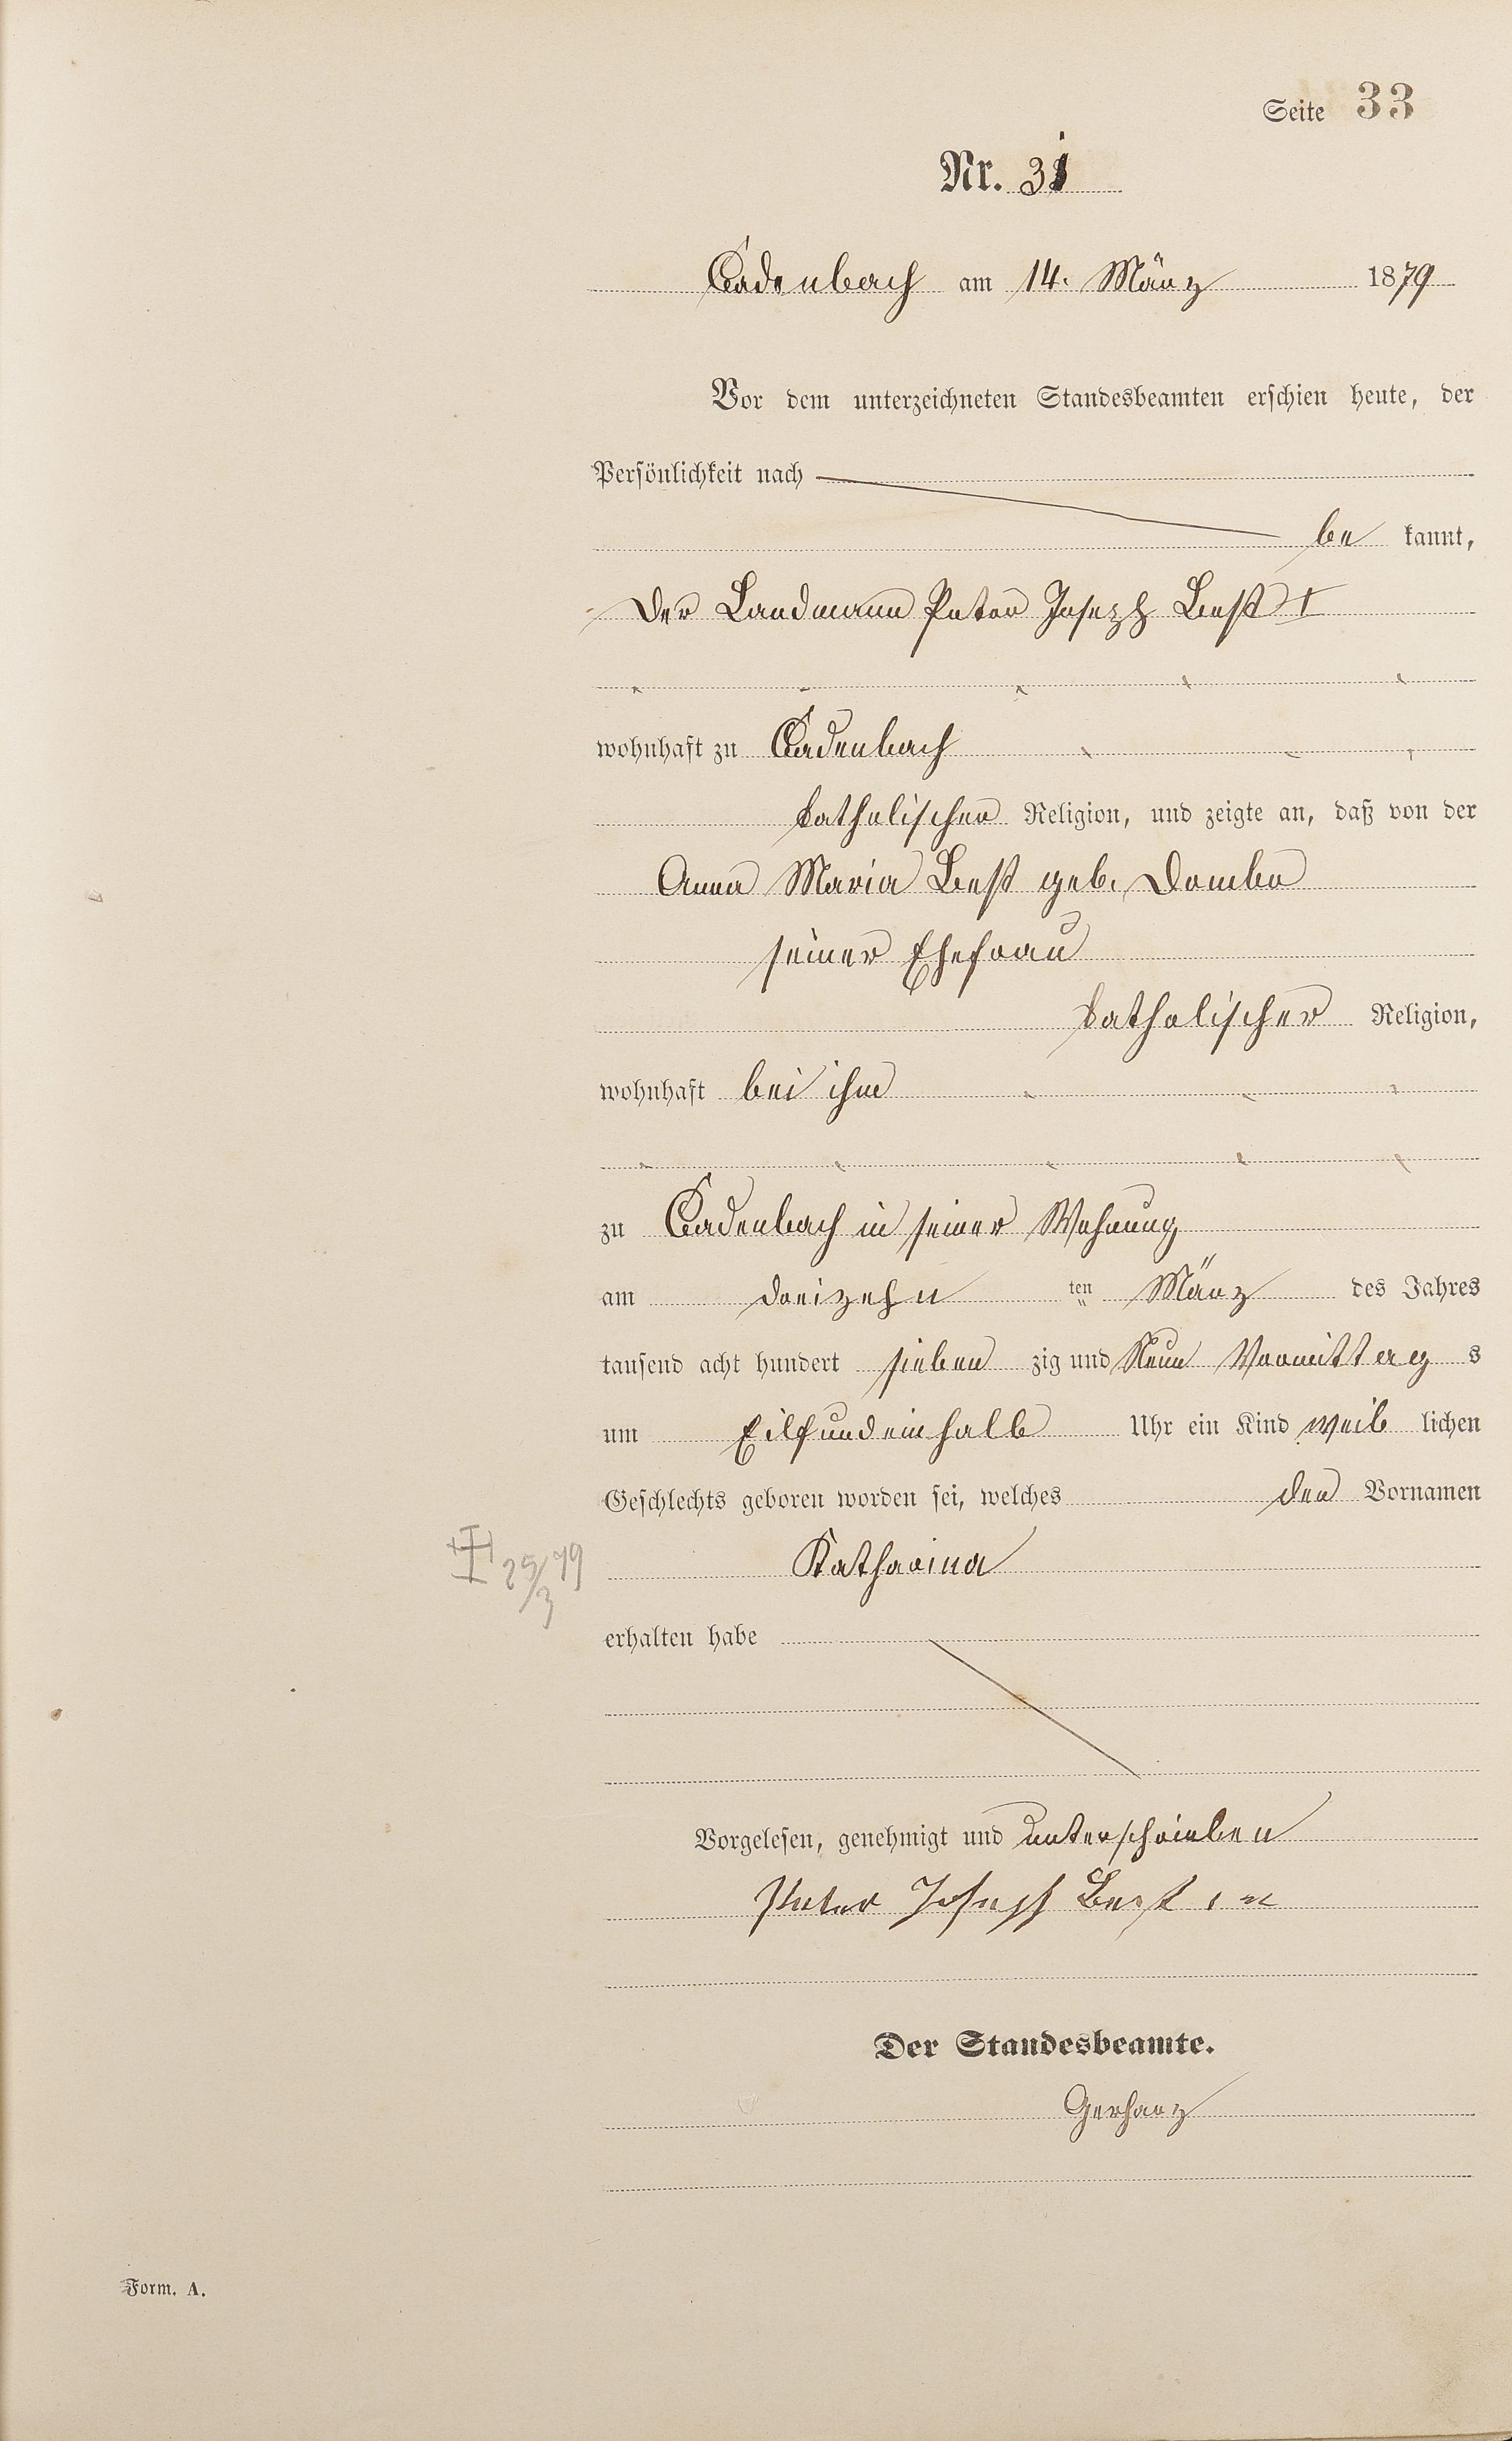 Seite 33
Nr. 31
Cadenbach am 14. März 1879
Vor dem unterzeichneten Standesbeamten erschien heute, der
Persönlichkeit nach
be kannt,
der Landmann Peter Joseph Best I
wohnhaft zu Cadenbach
katholischer Religion, und zeigte an, daß von der
Anna Maria Best geb. Dombo
seiner Ehefrau
katholischer Religion,
wohnhaft bei ihm
zu Cadenbach in seiner Wohnung
am dreizehn ten März des Jahres
tausend acht hundert sieben zig und Neun Vormittag s
um Eilfundeinhalb Uhr ein Kind weib lichen
Geschlechts geboren worden sei, welches den Vornamen
25/3 79
Katharina
erhalten habe
Vorgelesen, genehmigt und unterschrieben
Peter Joseph Best
Der Standesbeamte.
Gerharz
Form. A.